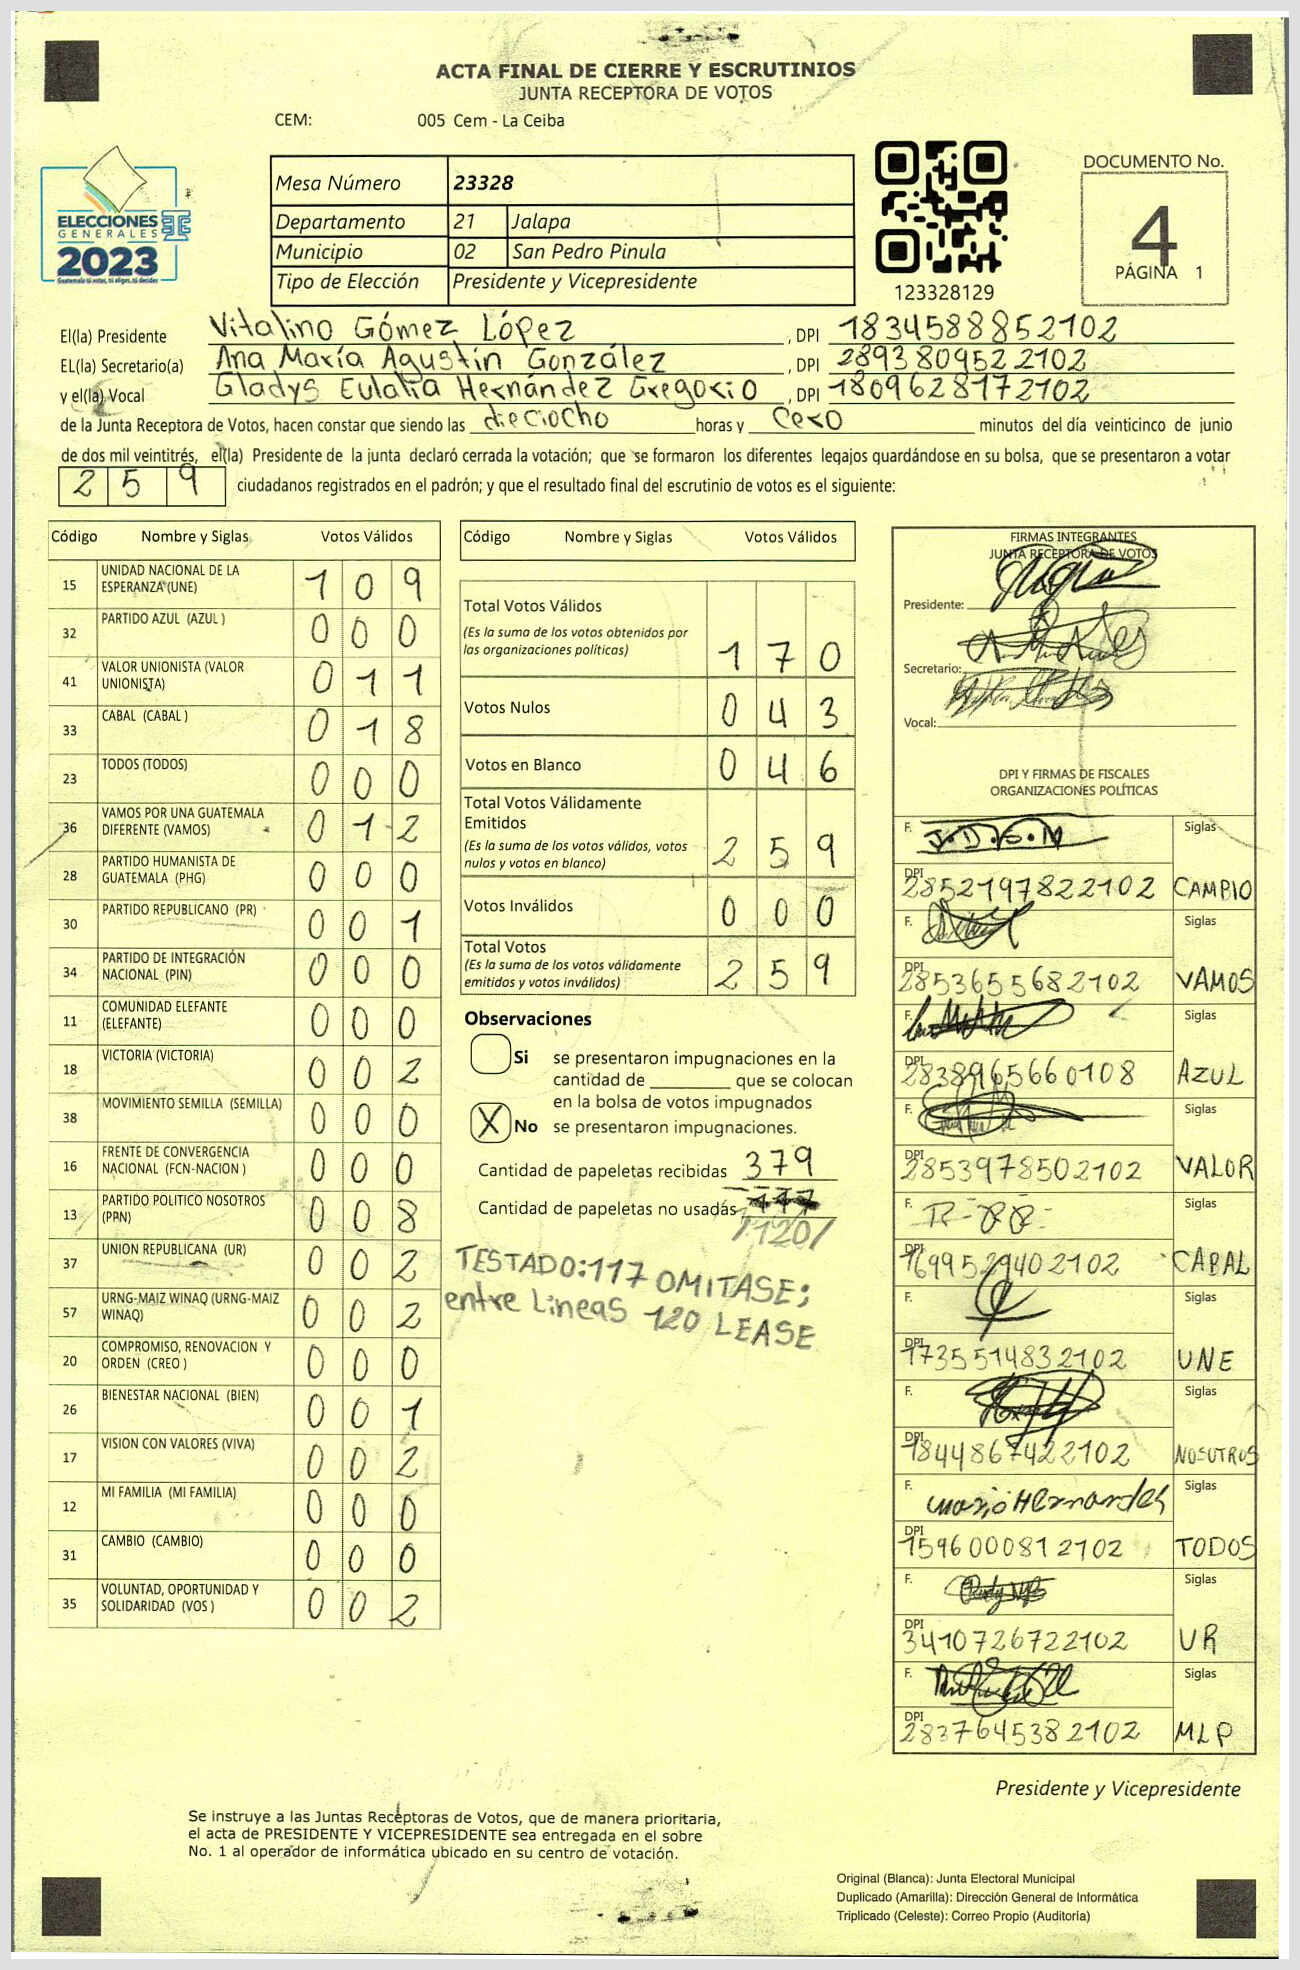 ACTA FINAL DE CIERRE Y ESCRUTINIOS
JUNTA RECEPTORA DE VOTOS
CEM: 005 Cem - La Ceiba
ELECCIONES
GENERALES
2023
Guatemala tú votas, tú eliges, tú decides
Mesa Número 23328
Departamento 21 Jalapa
Municipio 02 San Pedro Pinula
Tipo de Elección Presidente y Vicepresidente
123328129
DOCUMENTO No.
4
PÁGINA 1
El(la) Presidente Vitalino Gómez López, DPI 1834588852102
EL(la) Secretario(a) Ana María Agustín González, DPI 2893809522102
y el(la) Vocal Gladys Eulalia Hernández Gregorio, DPI 1809628172102
de la Junta Receptora de Votos, hacen constar que siendo las dieciocho horas y cero minutos del día veinticinco de junio
de dos mil veintitrés, el(la) Presidente de la junta declaró cerrada la votación; que se formaron los diferentes legajos guardándose en su bolsa, que se presentaron a votar
259 ciudadanos registrados en el padrón; y que el resultado final del escrutinio de votos es el siguiente:
Código Nombre y Siglas Votos Válidos
15 UNIDAD NACIONAL DE LA ESPERANZA (UNE) 109
32 PARTIDO AZUL (AZUL ) 000
41 VALOR UNIONISTA (VALOR UNIONISTA) 011
33 CABAL (CABAL ) 018
23 TODOS (TODOS) 000
36 VAMOS POR UNA GUATEMALA DIFERENTE (VAMOS) 012
28 PARTIDO HUMANISTA DE GUATEMALA (PHG) 000
30 PARTIDO REPUBLICANO (PR) 001
34 PARTIDO DE INTEGRACIÓN NACIONAL (PIN) 000
11 COMUNIDAD ELEFANTE (ELEFANTE) 000
18 VICTORIA (VICTORIA) 002
38 MOVIMIENTO SEMILLA (SEMILLA) 000
16 FRENTE DE CONVERGENCIA NACIONAL (FCN-NACION ) 000
13 PARTIDO POLITICO NOSOTROS (PPN) 008
37 UNION REPUBLICANA (UR) 002
57 URNG-MAIZ WINAQ (URNG-MAIZ WINAQ) 002
20 COMPROMISO, RENOVACION Y ORDEN (CREO ) 000
26 BIENESTAR NACIONAL (BIEN) 001
17 VISION CON VALORES (VIVA) 002
12 MI FAMILIA (MI FAMILIA) 000
31 CAMBIO (CAMBIO) 000
35 VOLUNTAD, OPORTUNIDAD Y SOLIDARIDAD (VOS ) 002
Código Nombre y Siglas Votos Válidos
Total Votos Válidos
(Es la suma de los votos obtenidos por
las organizaciones políticas) 170
Votos Nulos 043
Votos en Blanco 046
Total Votos Válidamente
Emitidos
(Es la suma de los votos válidos, votos
nulos y votos en blanco) 259
Votos Inválidos 000
Total Votos
(Es la suma de los votos válidamente
emitidos y votos inválidos) 259
Observaciones
Si se presentaron impugnaciones en la
cantidad de ________ que se colocan
en la bolsa de votos impugnados
X No se presentaron impugnaciones.
Cantidad de papeletas recibidas 379
Cantidad de papeletas no usadas 117
/120/
TESTADO:117 OMITASE;
entre Lineas 120 LEASE
FIRMAS INTEGRANTES
JUNTA RECEPTORA DE VOTOS
Presidente:
Secretario:
Vocal:
DPI Y FIRMAS DE FISCALES
ORGANIZACIONES POLÍTICAS
F. J.D.S.M Siglas
DPI 2852197822102 CAMBIO
F. Siglas
DPI 2853655682102 VAMOS
F. Siglas
DPI 2838965660108 AZUL
F. Siglas
DPI 2853978502102 VALOR
F. Siglas
DPI 1699529402102 CABAL
F. Siglas
DPI 1735514832102 UNE
F. Siglas
DPI 1844867422102 NOSOTROS
F. Mario Hernandez Siglas
DPI 1596000812102 TODOS
F. Siglas
DPI 3410726722102 UR
F. Siglas
DPI 2837645382102 MLP
Presidente y Vicepresidente
Se instruye a las Juntas Receptoras de Votos, que de manera prioritaria,
el acta de PRESIDENTE Y VICEPRESIDENTE sea entregada en el sobre
No. 1 al operador de informática ubicado en su centro de votación.
Original (Blanca): Junta Electoral Municipal
Duplicado (Amarilla): Dirección General de Informática
Triplicado (Celeste): Correo Propio (Auditoría)